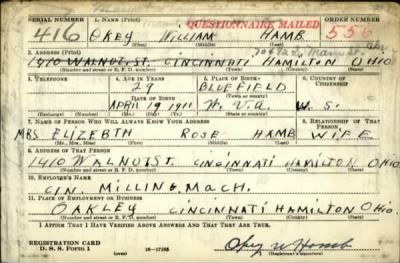 SERIAL NUMBER 1. NAME (Print) QUESTIONNAIRE MAILED ORDER NUMBER
416 OKEY WILLIAM HAMB 556
(First) (Middle) (Last)
2. ADDRESS (Print)
1410 WALNUT ST. CINCINNATI HAMILTON OHIO
(Number and street or R. F. D. number) (Town) (County) (State)
3. TELEPHONE 4. AGE IN YEARS 5. PLACE OF BIRTH 6. COUNTRY OF CITIZENSHIP
29 BLUEFIELD
DATE OF BIRTH
APRIL 19 1911 W. VA. U. S.
(Exchange) (No.) (Mo.) (Day) (Yr.) (State or country)
7. NAME OF PERSON WHO WILL ALWAYS KNOW YOUR ADDRESS 8. RELATIONSHIP OF THAT PERSON
MRS ELIZEBTH ROSE HAMB WIFE
(Mr., Mrs., Miss) (First) (Middle) (Last)
9. ADDRESS OF THAT PERSON
1410 WALNUT ST. CINCINNATI HAMILTON OHIO
(Number and street or R. F. D. number) (Town) (County) (State)
10. EMPLOYER'S NAME
CIN. MILLING MACH.
11. PLACE OF EMPLOYMENT OR BUSINESS
OAKLEY CINCINNATI HAMILTON OHIO.
(Number and street or R. F. D. number) (Town) (County) (State)
I AFFIRM THAT I HAVE VERIFIED ABOVE ANSWERS AND THAT THEY ARE TRUE.
REGISTRATION CARD
D. S. S. Form 1 16—17105 Okey W Hamb
(Registrant's signature)